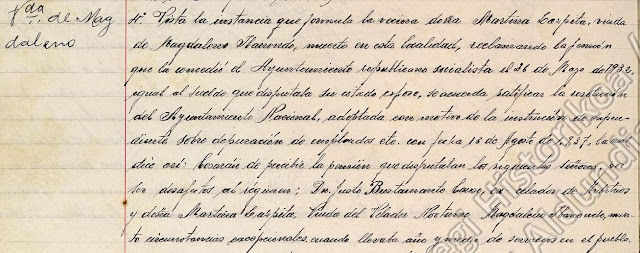 Vda. de Mag
daleno
4º. Vista la instancia que formula la vecina doña Martina Azpita, viuda
de Magdaleno Ibarrondo, muerto en esta localidad, reclamando la pensión
que la concedió el Ayuntamiento republicano socialista el 26 de Mayo de 1932,
igual al sueldo que disfrutaba su citado esposo, se acuerda ratificar la resolución
del Ayuntamiento Nacional, adoptada con motivo de la instrucción de expe-
diente sobre depuración de empleados etc. con fecha 18 de Agosto de 1.937, la cual
dice así: Cesarán de percibir la pensión que disfrutaban los siguientes señores, por
ser desafectos al régimen; Dn. Justo Bustamante ex celador de Arbitrios
y doña Martina Azpita, Viuda del Velador Nocturno, Magdaleno muer-
to circunstancias excepcionales, cuando llevaba año y medio de servicios en el pueblo.